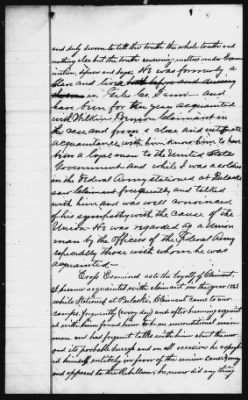 and duly sworn to tell the truth the whole truth and
nothing else but the truth concerning matters under Exami
nation, deposes and says. He was formerly a
slave and lived
in Giles Co. Tenn and
have been for ten year acquainted
with Claimant in
the case and from a close and intimate
acquaintance with him know him to have
been a loyal man to the United State
Government and while I was a soldier
in the Federal Army stationed at Pulaski
saw Claimant frequently and talked
with him and was well convinced
of his sympathy with the cause of the
Union He was regarded as a Union
man by the Officers of the Federal Army
especially those with whom he was
acquainted
Cross Examined as to the loyalty of Claimant
I became acquainted with claimant in the year 1863
while stationed at Pulaski, Claimant came to our
camps frequently (every day) and after becoming acquaint
ed with him found him to be an unconditional union
man, and had frequent talks with him about the war
and its probable success and on all occasion he express
ed himself entirely in favor of the union cause
and opposed to the Rebellion, he never did any thing